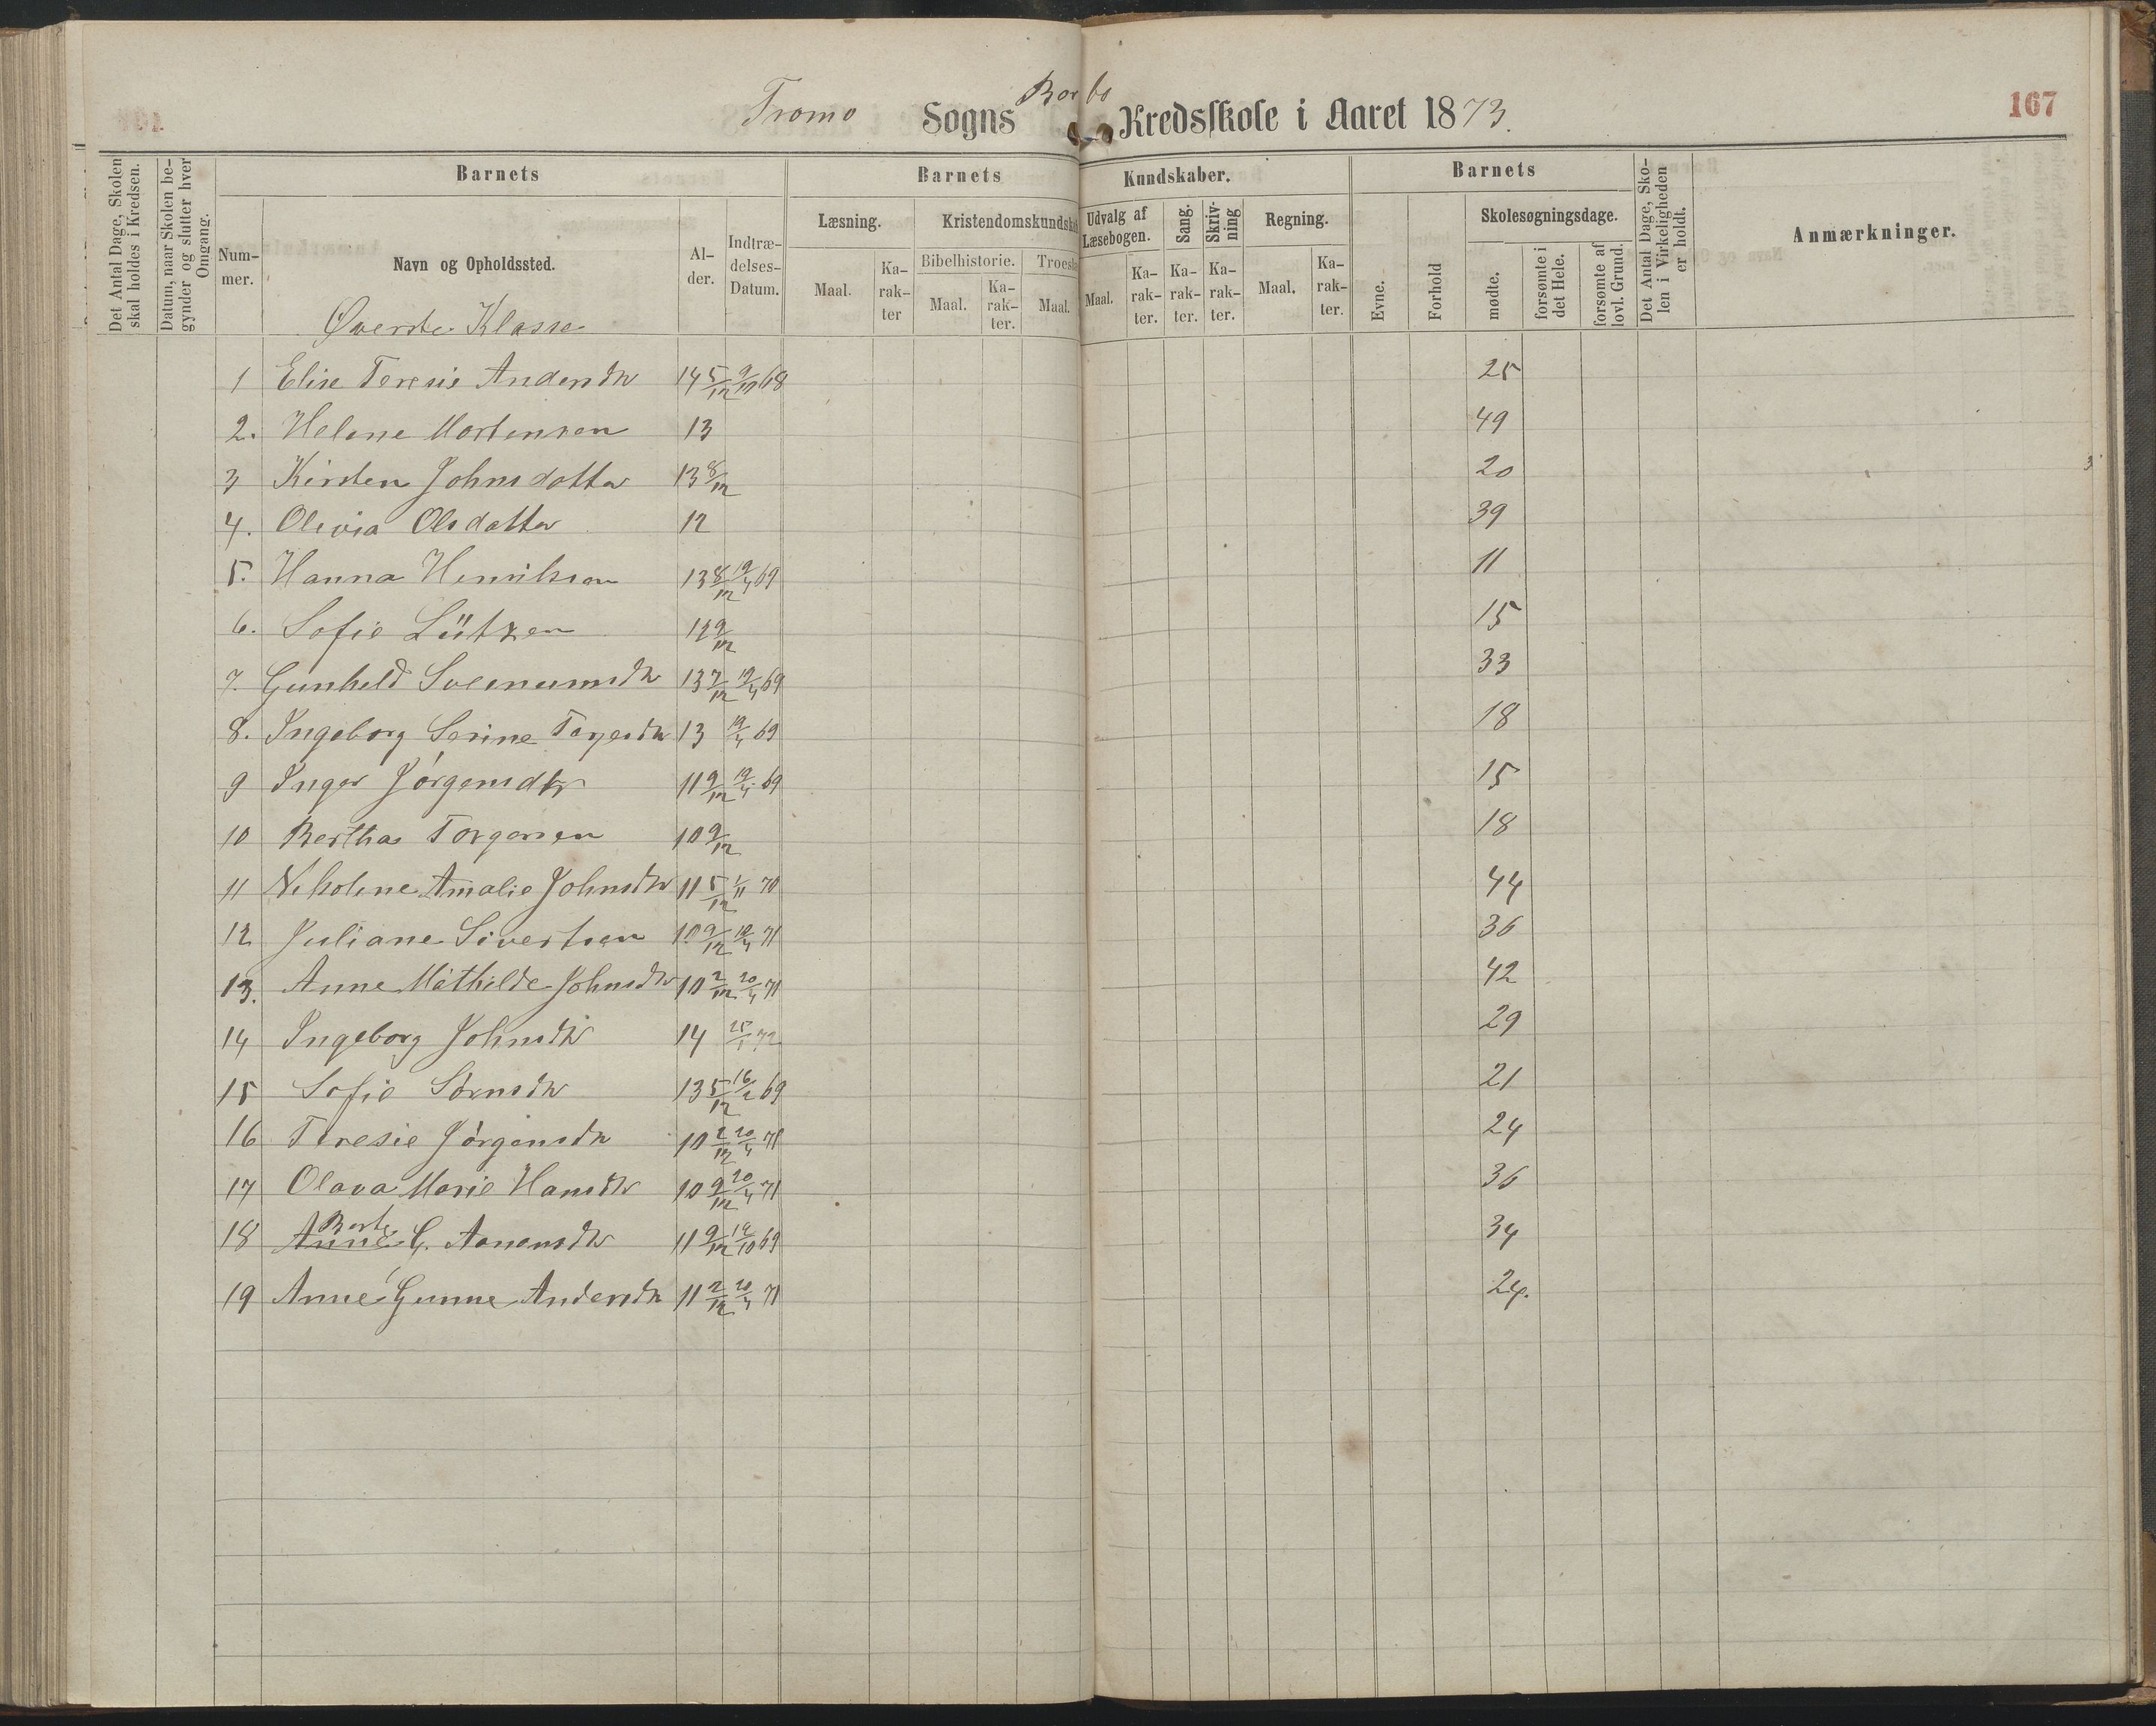 Tromø Sogns Barbo Kredsskole i Aaret 1873.
167
Det Antal Dage, Skolen skal holdes i Kredsen.
Datum, naar Skolen begynder og slutter hver Omgang.
Barnets
Nummer.
Navn og Opholdssted.
Alder.
Indtrædelses-Datum.
Barnets Kundskaber.
Læsning.
Maal.
Karakter
Kristendomskundsk
Bibelhistorie.
Maal.
Karakter.
Troes
Maal.
Udvalg af Læsebogen.
Maal.
Karakter.
Sang.
Karakter.
Skrivning
Karakter.
Regning.
Maal.
Karakter.
Barnets
Evne.
Forhold
Skolesøgningsdage.
mødte.
forsømte i det Hele.
forsømte af lovl. Grund.
Det Antal Dage, Skolen i Virkeligheden er holdt.
Anmærkninger.
Øverste Klasse
1 Elise Teresie Andersdtr 14 5/12 9/10 68 25
2. Helene Mortensen 13 49
3 Kirsten Johnsdatter 13 8/12 20
4. Olivia Olsdatter 12 39
5. Hanna Henriksen 13 8/12 19/4 69 11
6. Sofie Lützen 12 9/12 15
7. Gunhild Sveinumsdtr 13 7/12 19/4 69 33
8. Ingeborg Serine Terjesdtr 13 19/4 69 18
9 Inger Jørgensdtr 11 9/12 19/4 69 15
10 Berthe Torgersen 10 9/12 18
11 Nikoline Amalie Johnsdtr 11 5/12 1/11 70 44
12 Juliane Sivertsen 10 9/12 19/4 71 36
13. Anne Mathilde Johnsdtr 10 2/12 20/4 71 42
14 Ingeborg Johnsdtr 14 25/1 72 29
15 Sofie Sørnsdtr 13 5/12 16/2 69 21
16 Teresie Jørgensdtr 10 2/12 20/4 71 24
17 Olava Marie Hansdtr 10 9/12 20/4 71 36
18 Anne Berte G. Aanonsdtr 11 9/12 19/10 69 34
19 Anne Gunne Andersdtr 11 2/12 20/4 71 24.